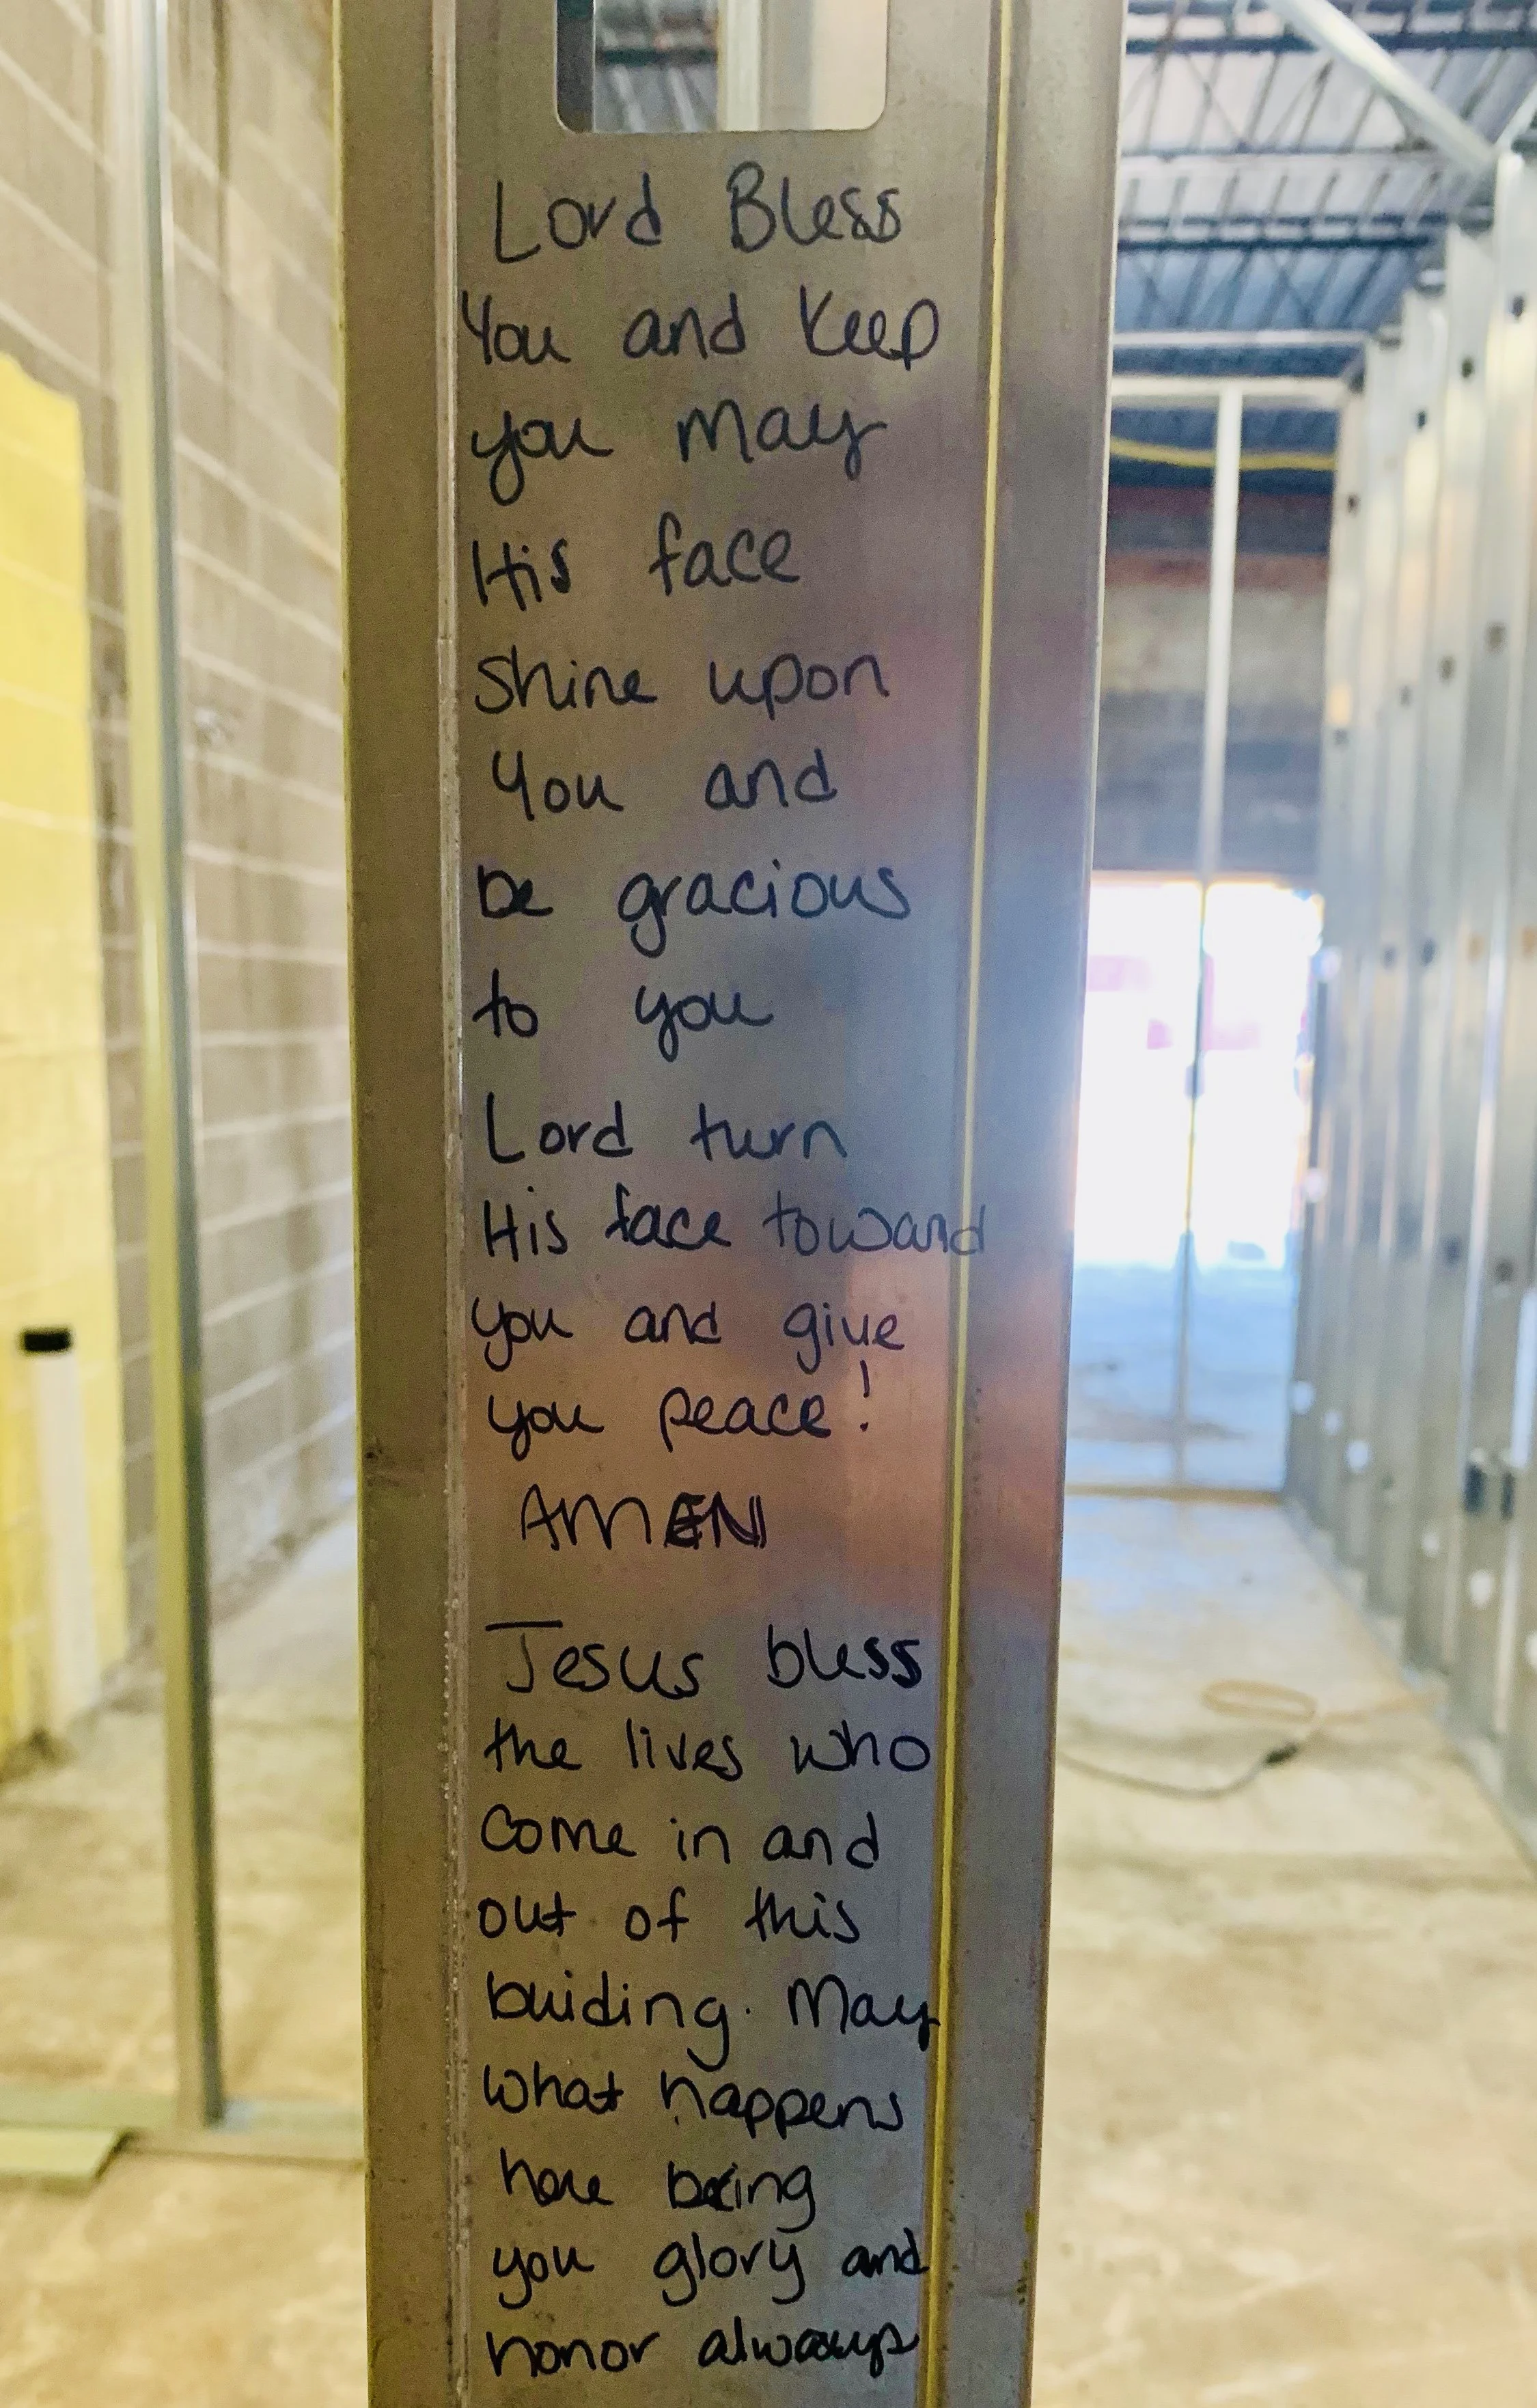 Lord Bless
You and Keep
you May
His face
Shine upon
You and
be gracious
to you
Lord turn
His face toward
you and give
you peace!
AMEN
Jesus bless
the lives who
Come in and
out of this
buiding. May
what happens
here bring
you glory and
honor always